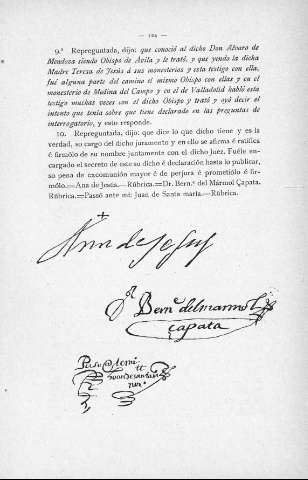 — 124 —
9.ª Repreguntada, dijo: que conoció al dicho Don Álvaro de
Mendoza siendo Obispo de Ávila y le trató, y que yendo la dicha
Madre Teresa de Jesús á sus monesterios y esta testigo con ella,
fué alguna parte del camino el mismo Obispo con ellas y en el
monesterio de Medina del Campo y en el de Valladolid habló esta
testigo muchas veces con el dicho Obispo y trató y oyó decir el
intento que tenía sobre que tiene declarado en las preguntas de
interrogatorio, y esto responde.
10. Repreguntada, dijo: que dice lo que dicho tiene y es la
verdad, so cargo del dicho juramento y en ello se afirma é ratifica
é firmólo de su nombre juntamente con el dicho Juez. Fuéle en-
cargado el secreto de este su dicho é declaración hasta lo publicar,
so pena de excomunión mayor é de perjura é prometiólo é fir-
mólo.—Ana de Jesús.—Rúbrica.—Dr. Bern.º del Mármol Çapata.
Rúbrica.=Pasó ante mi: Juan de Santa maría.—Rúbrica.
Ana de Jesus
Dr Bern.º del marmol
çapata
Paso Ante mi